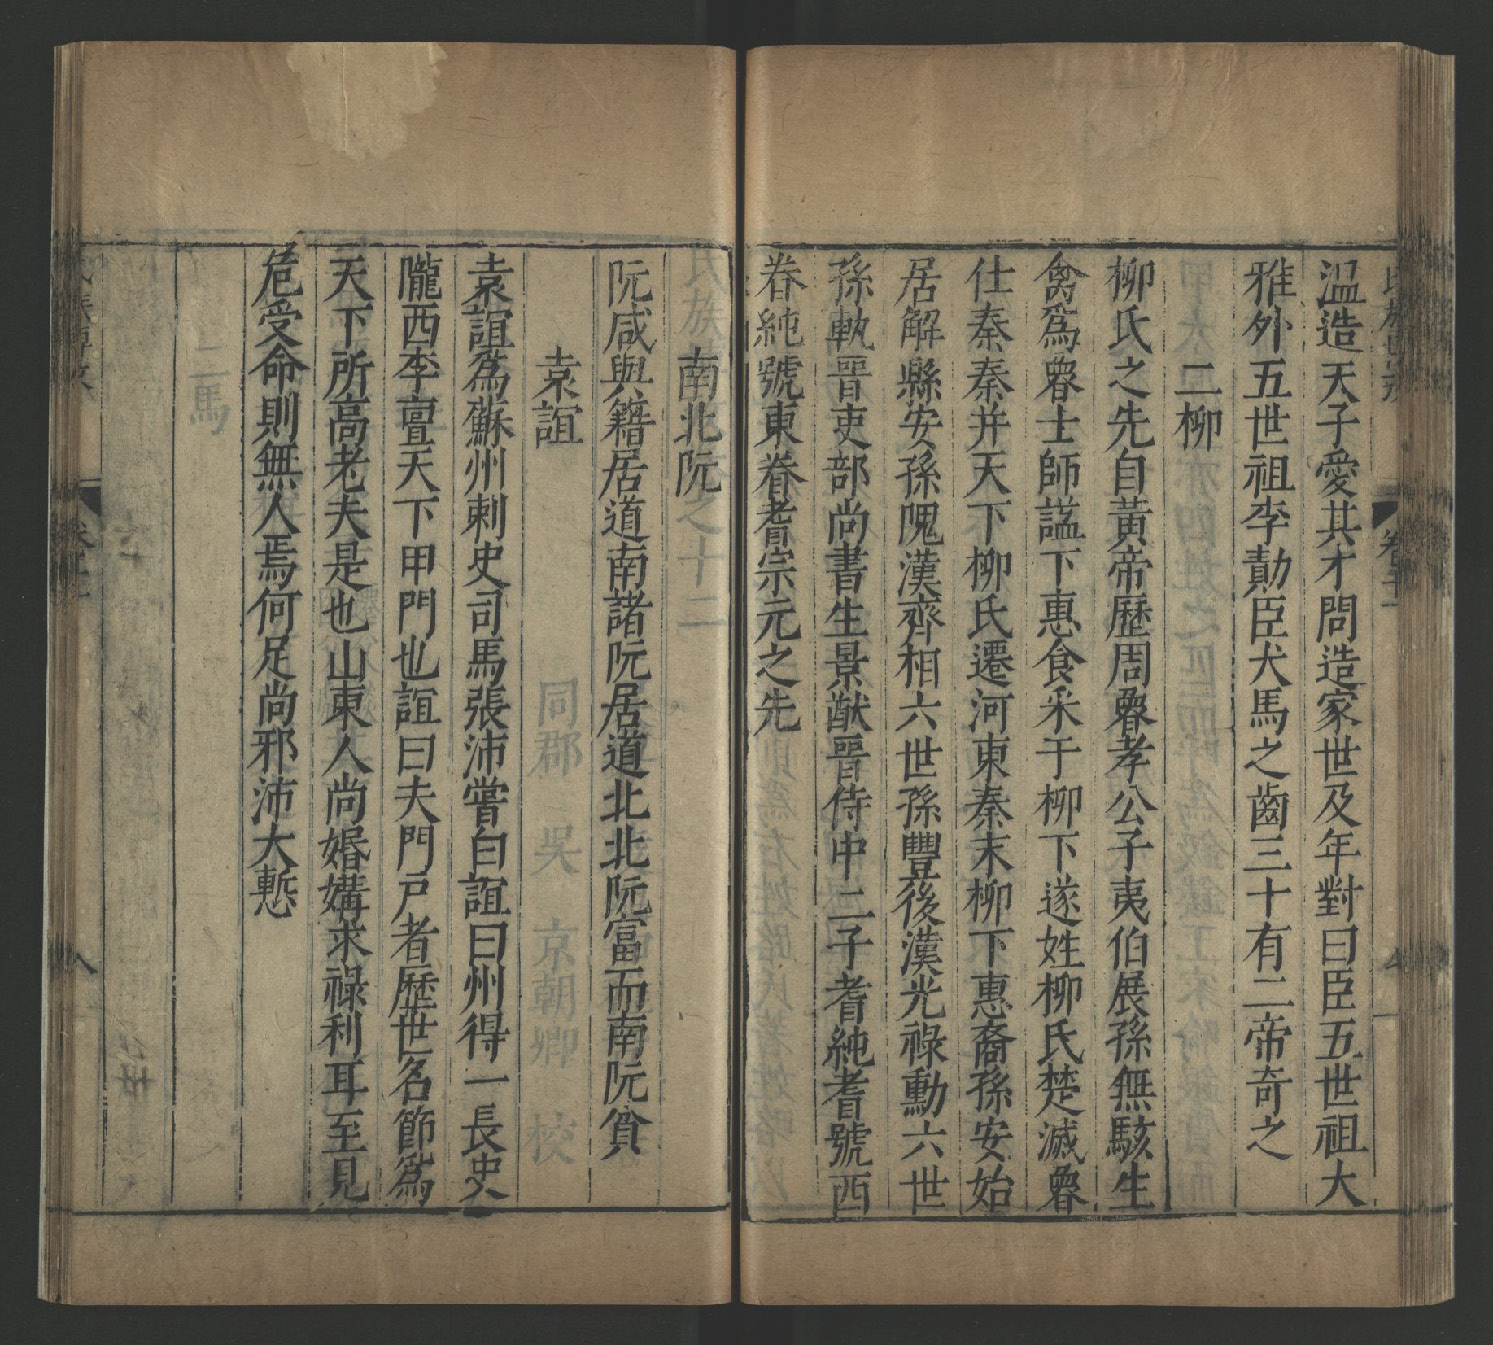 温造天子愛其才問造家世及年對曰臣五世祖大
雅外五世祖李勣臣犬馬之齒三十有二帝奇之
二柳
柳氏之先自黃帝歷周魯孝公子夷伯展孫無駭生
禽爲魯士師諡下惠食采于柳下遂姓柳氏楚滅魯
仕秦秦并天下柳氏遷河東秦末柳下惠裔孫安始
居解縣安孫隗漢齊相六世孫豐後漢光祿勳六世
孫軌晉吏部尚書生景猷晉侍中二子耆純耆號西
眷純號東眷耆宗元之先
南北阮
阮咸與籍居道南諸阮居道北北阮富而南阮貧
袁誼
袁誼爲蘇州刺史司馬張沛嘗白誼曰州得一長史
隴西李亶天下甲門也誼曰夫門戶者歷世名節爲
天下所高老夫是也山東人尚婚媾求祿利耳至見
危受命則無人焉何足尚邪沛大慙